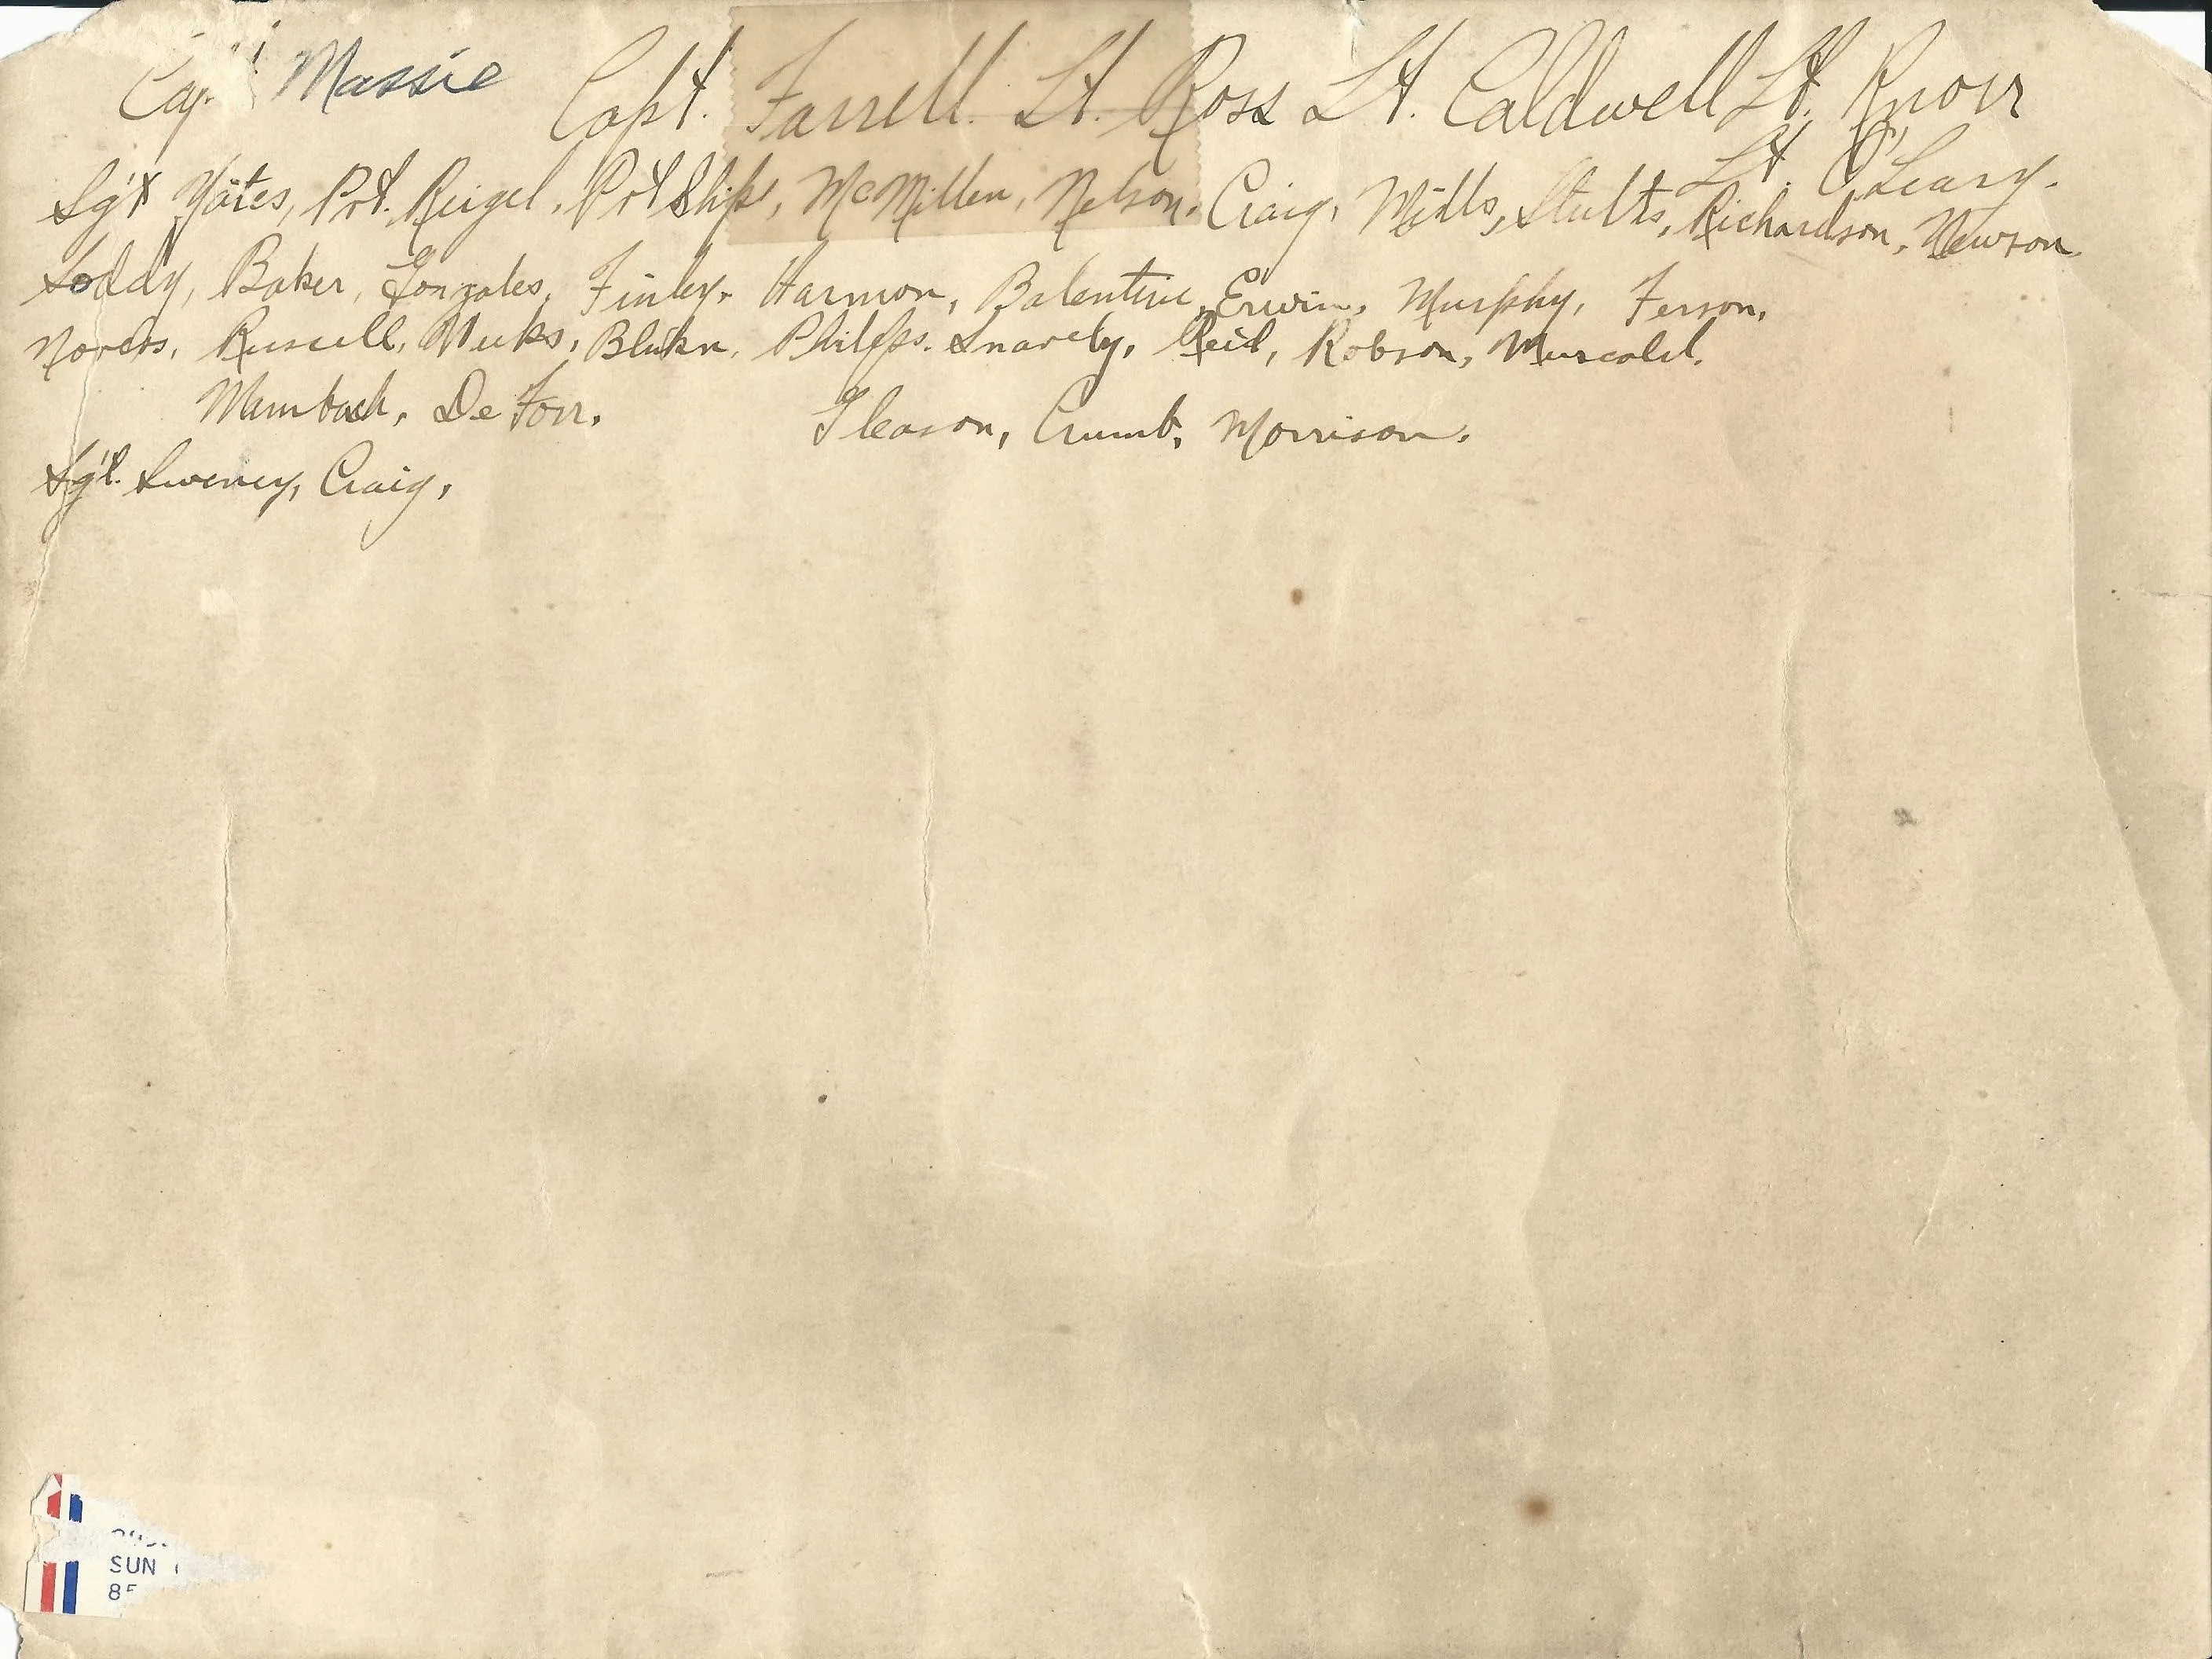 Cap Massie Capt. Farrell. Lt. Ross Lt. Caldwell Lt. Knorr
Lt. O'Leary.
Sgt Yates, Pvt. Reigel, Pvt Ship, McMillen, Nelson, Craig, Mills, Stults, Richardson, Newson
Soddy, Baker, Gonzales, Finley. Harmon, Balentine, Erwin, Murphy, Ferson,
Russell, Meeks, Philips. Snavely, Reid, Robson,
Mambach, De Forr. Gleason, Crumb, Morrison.
Sgt. Sweney, Craig,
SUN
85